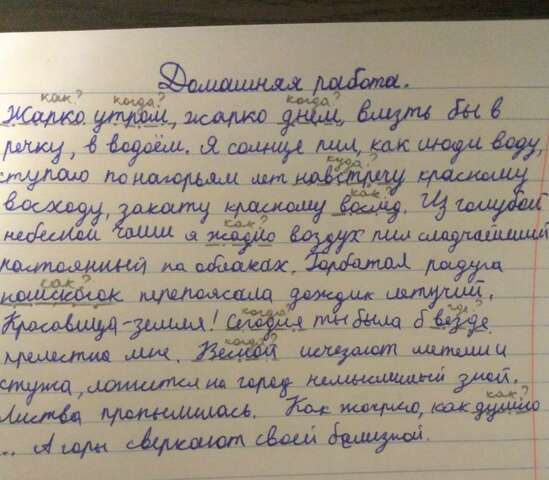 Домашняя работа.
как? когда? когда?
Жарко утром, жарко днём, влезть бы в
речку, в водоём. Я солнце пил, как люди воду,
куда?
ступаю по нагорьям лет навстречу красному
как?
восходу, закату красному вослед. Из голубой
как?
небесной чаши я жадно воздух пил сладчайший
настоянный на облаках. Горбатая радуга
как?
наискосок перепоясала дождик летучий.
когда? где?
Красавица-земля! Сегодня ты была б везде
когда?
прелестна мне. Весной исчезают метели и
стужа, ложится на город немыслимый зной.
как?
листва пропылилась. Как жарко, как душно
... А горы сверкают своей белизной.